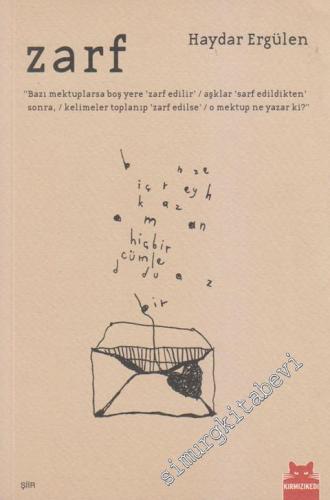 zarf
Haydar Ergülen
"Bazı mektuplarsa boş yere 'zarf edilir' / aşklar 'sarf edildikten'
sonra, / kelimeler toplanıp 'zarf edilse' / o mektup ne yazar ki?"
hiçbir
cümle
bir
simurgkitabevi
ŞİİR
KIRMIZIKEDİ